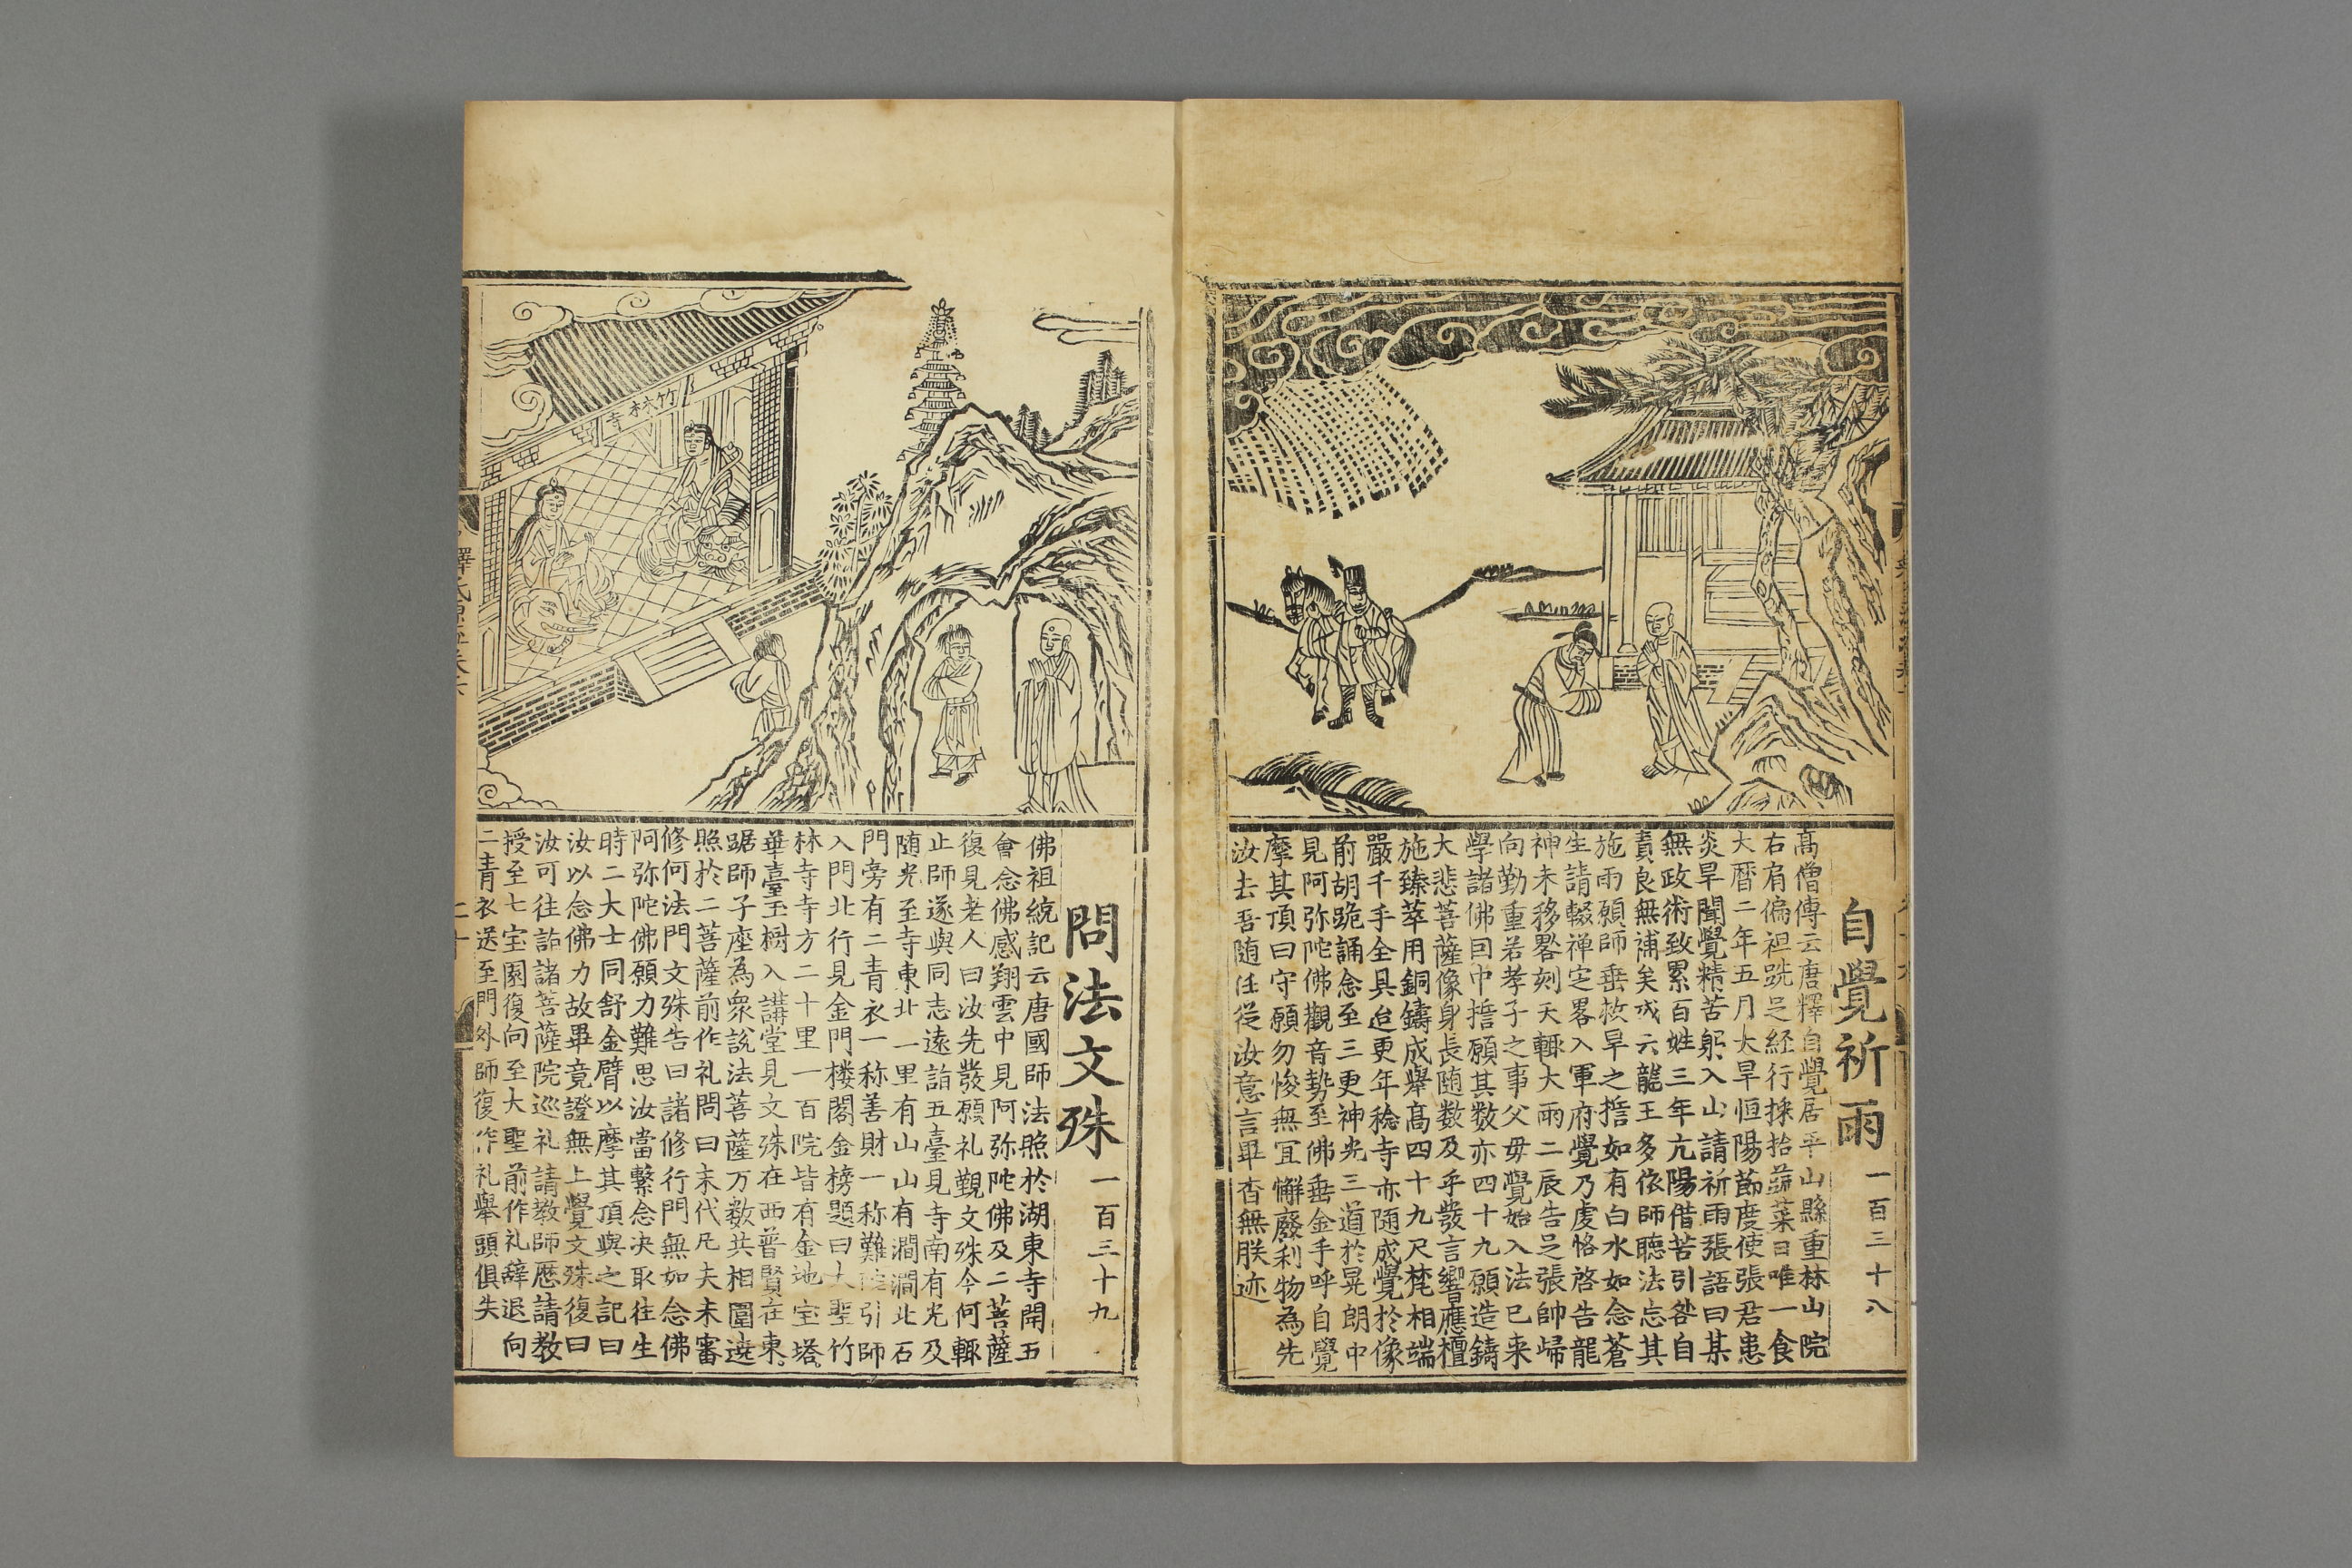 自覺祈雨 一百三十八
高僧傳云唐釋自覺居平山縣重林山院
右肩偏袒跣足経行採拾蔬葉日唯一食
大曆二年五月大旱恒陽節度使張君患
炎旱聞覺精苦躬入山請祈雨張語曰某
無政術致累百姓三年亢陽借苦引咎自
責良無補矣或云龍王多依師聽法忘其
施雨願師垂救旱之誓如有白水如念蒼
生請輟禅定畧入軍府覺乃虔恪啓告龍
神未移晷刻天輙大雨二辰告足張帥㱕
向勤重若孝子之事父毋覺始入法已来
學諸佛囙中誓願其数亦四十九願造鑄
大悲菩薩像身長随数及乎發言響應檀
施臻萃用銅鑄成舉髙四十九尺梵相端
嚴千手全具迨更年稔寺亦随成覺於像
前胡跪誦念至三更神光三道於晃朗中
見阿弥陀佛觀音勢至佛垂金手呼自覺
摩其頂曰守願勿悛無冝懈廢利物為先
汝去吾随任從汝意言畢杳無朕迹
問法文殊 一百三十九
佛祖統記云唐國師法照於湖東寺開五
會念佛感翔雲中見阿弥陀佛及二菩薩
復見老人曰汝先發願礼覲文殊今何輙
止師遂與同志遠詣五臺見寺南有光及
随光至寺東北一里有山山有澗澗北石
門旁有二青衣一称善財一称難陁引師
入門北行見金門楼閣金榜題曰大聖竹
林寺寺方二十里一百院皆有金地宝塔
華臺玉樹入講堂見文殊在西普賢在東
踞師子座為衆說法菩薩万数共相圍遶
照於二菩薩前作礼問曰末代凡夫未審
修何法門文殊告曰諸修行門無如念佛
阿弥陀佛願力難思汝當繫念决取往生
時二大士同舒金臂以摩其頂與之記曰
汝以念佛力故畢竟證無上覺文殊復曰
汝可往詣諸菩薩院巡礼請教師歷請教
授至七宝園復向至大聖前作礼辭退向
二青衣送至門外師復作礼舉頭俱失
竹林寺
釋氏源流